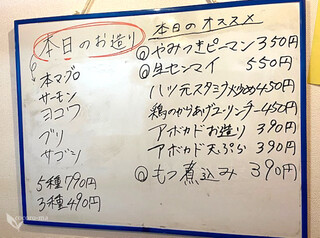 本日のお造り
本マグロ
サーモン
ヨコワ
ブリ
サゴシ
5種790円
3種490円
本日のオススメ
◎やみつきピーマン 350円
◎生センマイ 550円
ハツ元スタミナ炒め450円
鶏のからあげユーリンチー450円
アボカドお造り 390円
アボカド天ぷら 390円
◎もつ煮込み 390円